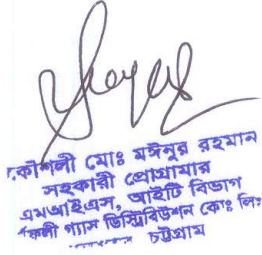 কৌশলী মোঃ মঈনুর রহমান
সহকারী প্রোগ্রামার
এমআইএস, আইটি বিভাগ
গ্যাস ডিস্ট্রিবিউশন কোঃ লিঃ
চট্টগ্রাম